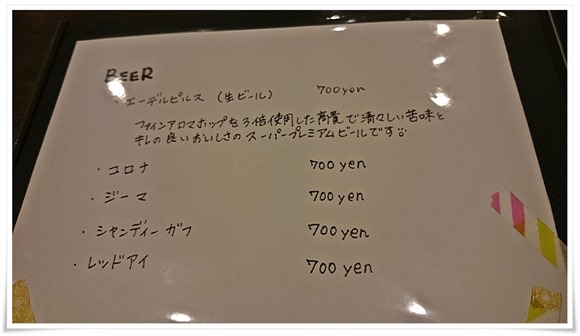 BEER
・エーデルピルス (生ビール) 700yen
ファインアロマホップを3倍使用した高貴で清々しい苦味と
キレの良いおいしさのスーパープレミアムビールです
・コロナ 700 yen
・ジーマ 700 yen
・シャンディーガフ 700 yen
・レッドアイ 700 yen